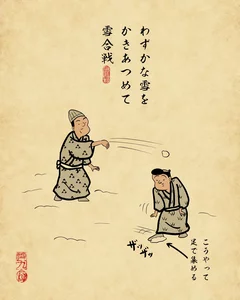 わずかな雪を
かきあつめて
雪合戦
こうやって
足で集める
ザッザッ